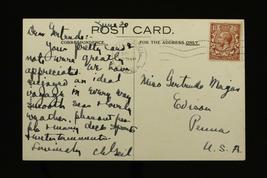 June 20
POST CARD.
CORRESPONDENCE
FOR THE ADDRESS ONLY.
Dear Gertrude!
Your pretty card &
note were greatly
appreciated. We have
enjoyed an ideal
voyage in every way
smooth seas & lovely
weather, pleasant peo-
ple & many deck sports
& entertainments.
Sincerely
Miss Gertrude Magas
Edison
Penna
U.S.A